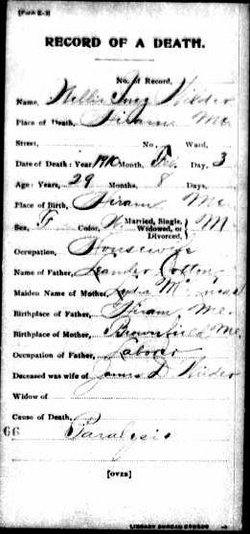 [Form E-3]
RECORD OF A DEATH.
No. of Record,
Name, Nellie Wilder
Place of Death, Hiram Me
Street, No. Ward,
Date of Death: Year, 1910 Month, Feb Day, 3
Age: Years, 29 Months, 8 Days,
Place of Birth, Hiram Me
Sex, F Color, W Married, Single, Widowed, or Divorced, M
Occupation, Housewife
Name of Father, Leander Cotton
Maiden Name of Mother, Lydia
Birthplace of Father, Hiram Me
Birthplace of Mother, Brownfield Me
Occupation of Father, Laborer
Deceased was wife of James D Wilder
Widow of
Cause of Death,
66 Paralysis
[OVER]
LIBRARY BUREAU